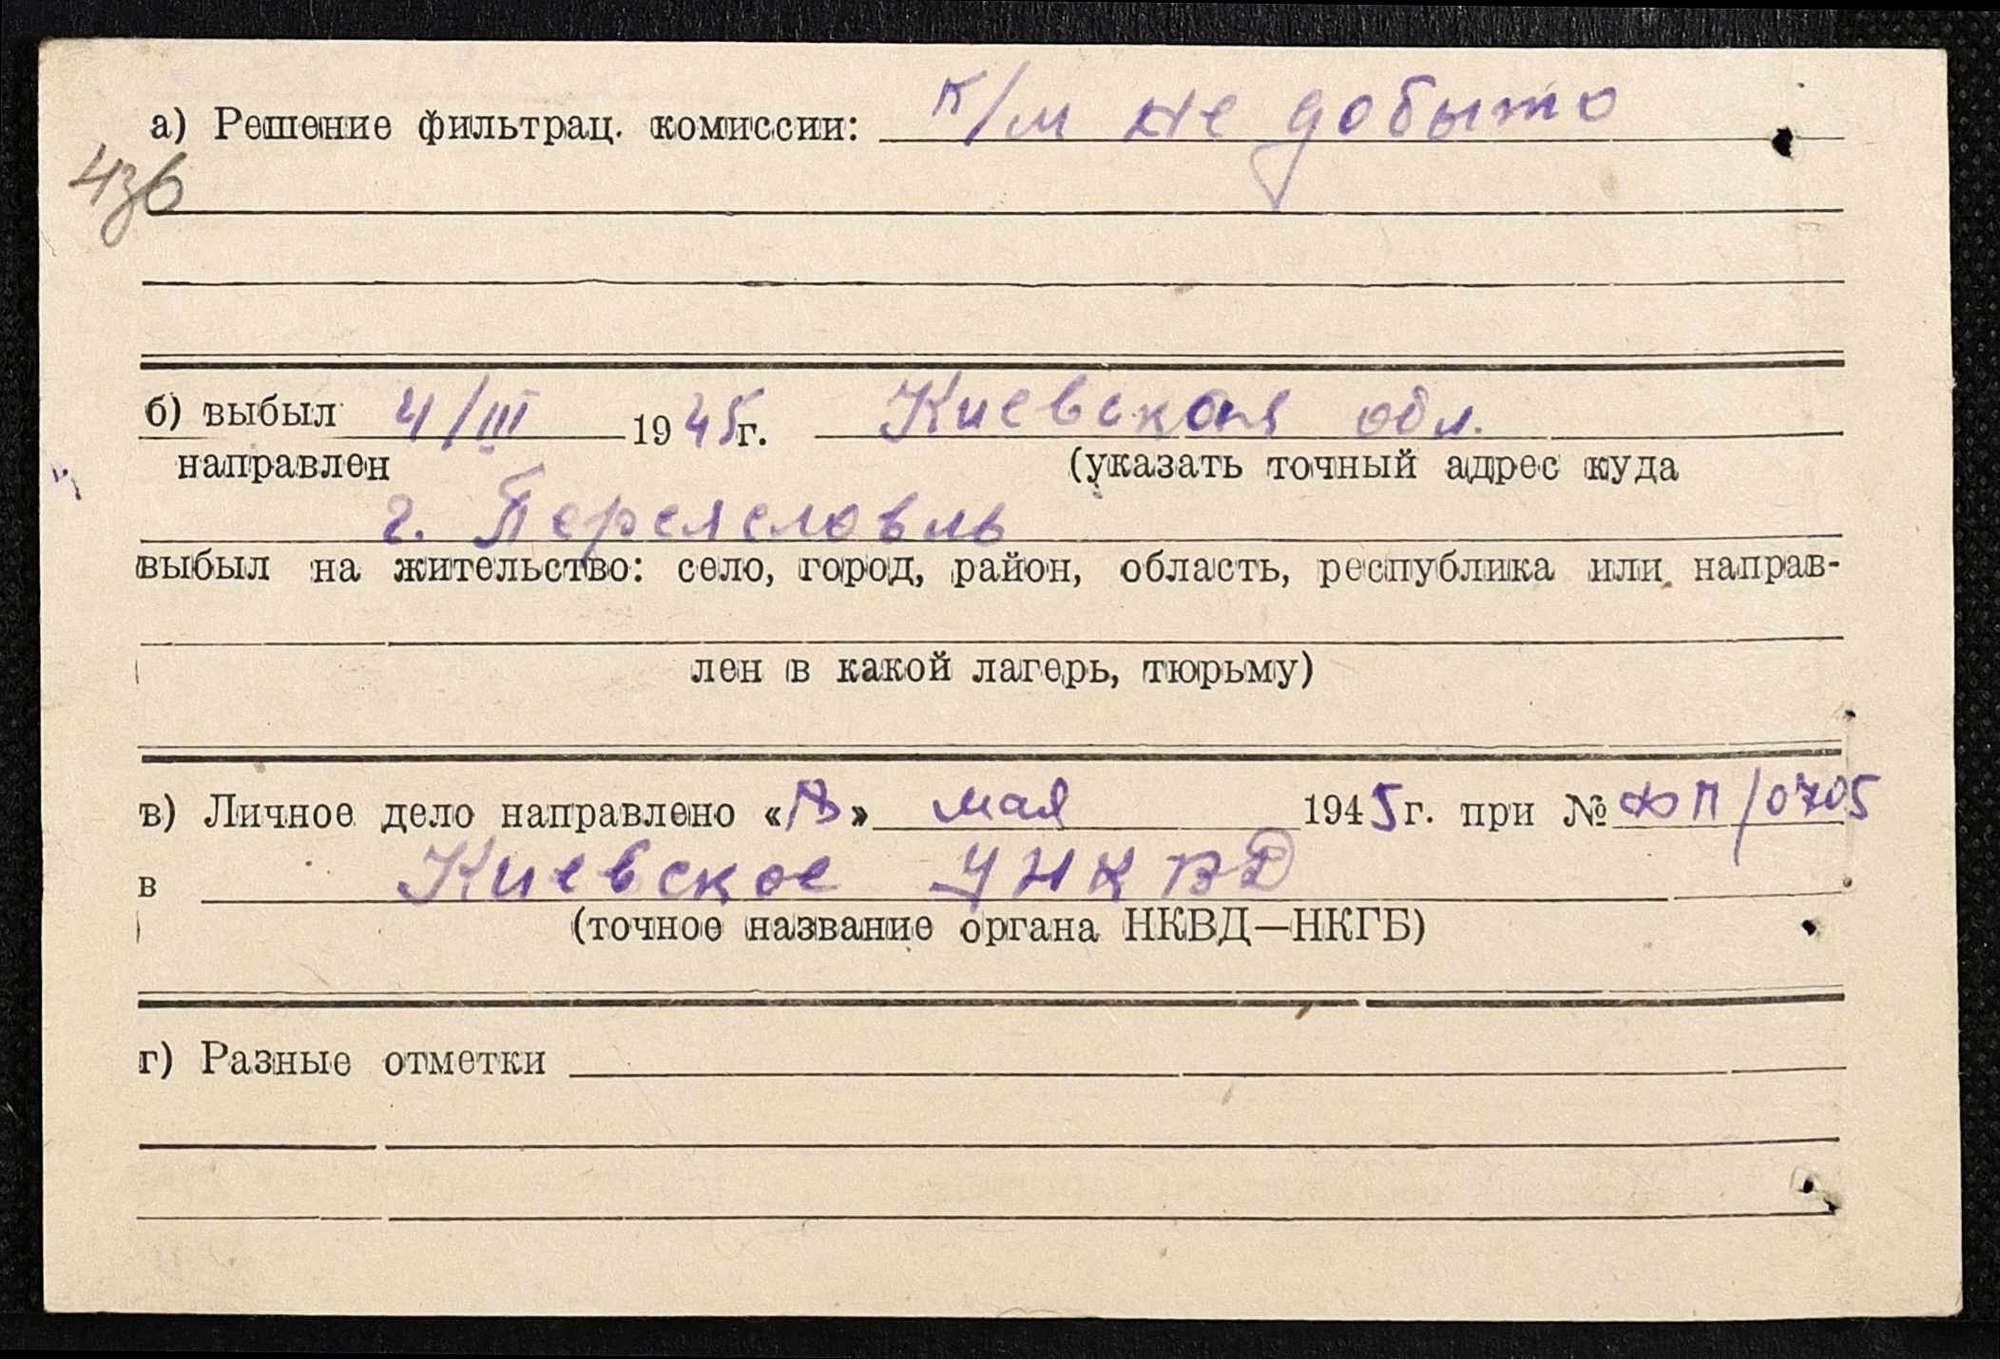 а) Решение фильтрац. комиссии: к/м не добыто
436
б) выбыл 4/III 1945г. Киевская обл.
направлен (указать точный адрес куда
г. Переясловль
выбыл на жительство: село, город, район, область, республика или направ-
лен в какой лагерь, тюрьму)
в) Личное дело направлено « » мая 1945г. при № ФП/0705
в Киевское УНКВД
(точное название органа НКВД—НКГБ)
г) Разные отметки